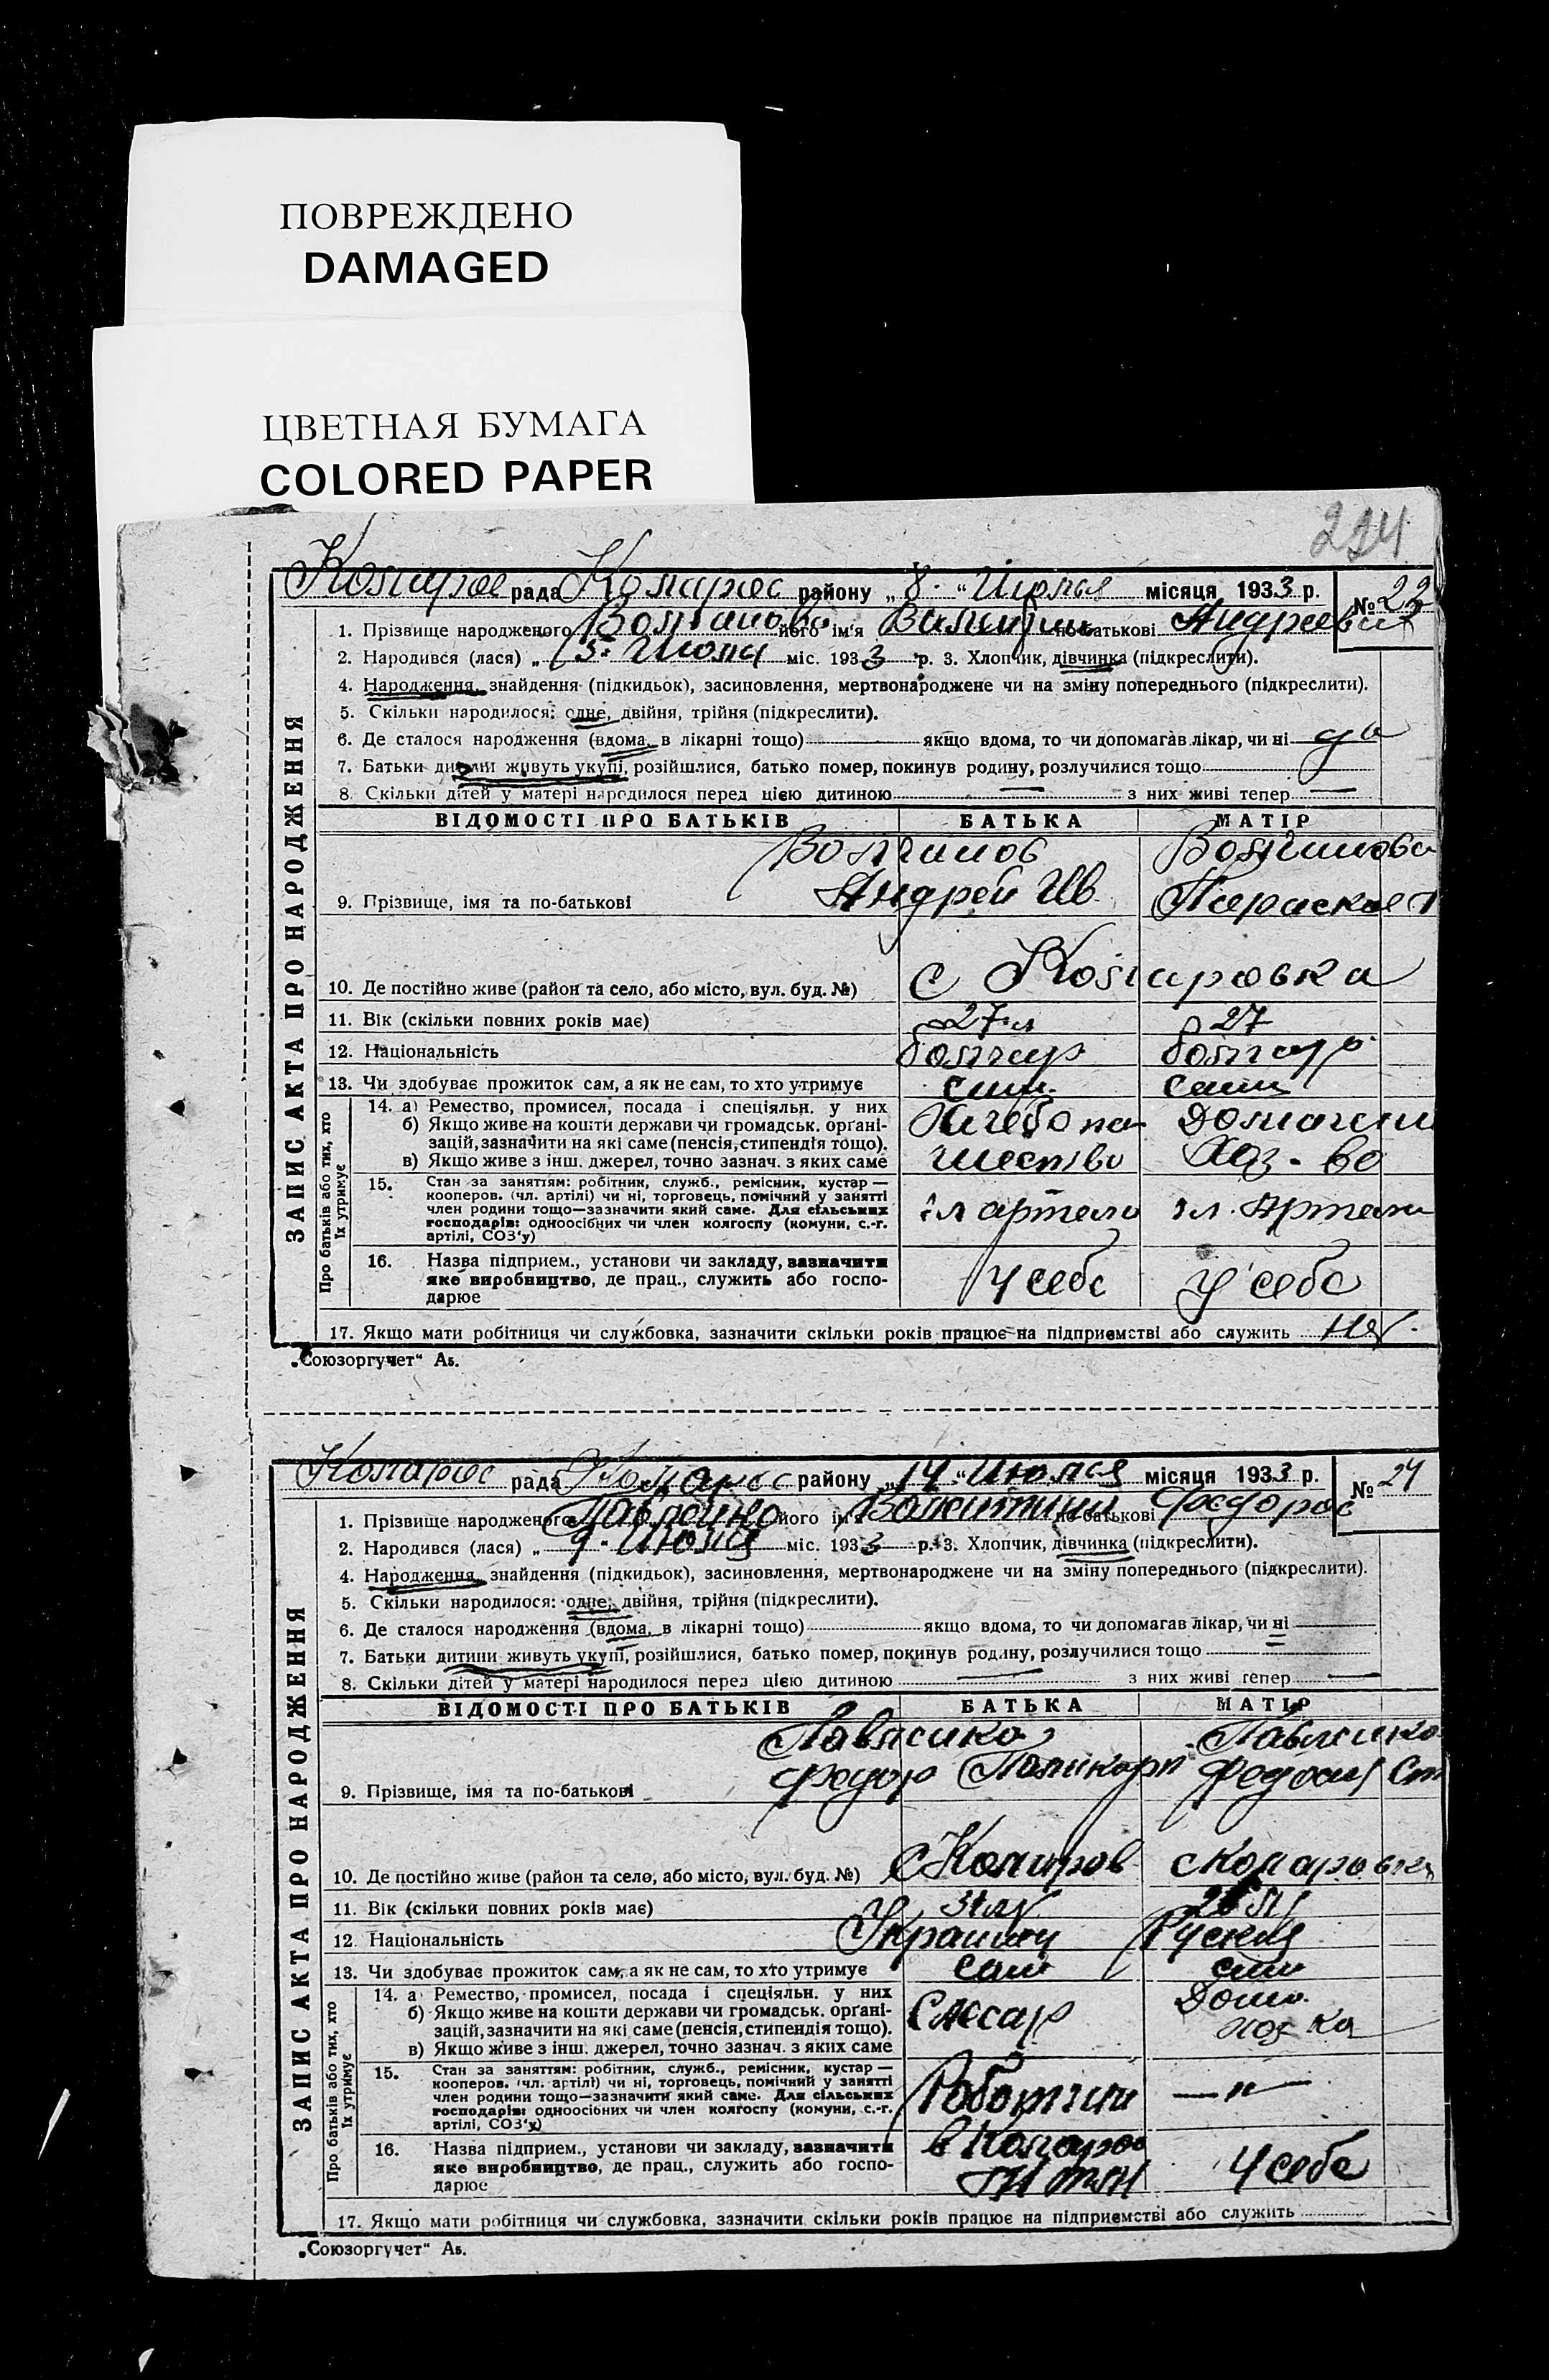 ПОВРЕЖДЕНО
DAMAGED
ЦВЕТНАЯ БУМАГА
COLORED PAPER
234
рада району „8“ Июля місяця 1933 р. № 23
1. Прізвище народженого його ім'я по батькові
2. Народився (лася) „5“ Июля міс. 1933 р. 3. Хлопчик, дівчинка (підкреслити).
4. Народження, знайдення (підкидьок), засиновлення, мертвонароджене чи на зміну попереднього (підкреслити).
5. Скільки народилося: одне, двійня, трійня (підкреслити).
6. Де сталося народження (вдома, в лікарні тощо) якщо вдома, то чи допомагав лікар, чи ні да
7. Батьки дитини живуть укупі, розійшлися, батько помер, покинув родину, розлучилися тощо
8. Скільки дітей у матері народилося перед цією дитиною — з них живі тепер —
ВІДОМОСТІ ПРО БАТЬКІВ БАТЬКА МАТІР
Андрей Ив.
9. Прізвище, імя та по-батькові
10. Де постійно живе (район та село, або місто, вул. буд. №) с
11. Вік (скільки повних років має) 27 л 27
12. Національність болгар болгар.
13. Чи здобуває прожиток сам, а як не сам, то хто утримує сам. сама
14. а) Ремество, промисел, посада і спеціяльн. у них
б) Якщо живе на кошти держави чи громадськ. організацій, зазначити на які саме (пенсія, стипендія тощо).
в) Якщо живе з інш. джерел, точно зазнач. з яких саме
Хлебопа
шество
Хоз-во
15. Стан за заняттям: робітник, служб., ремісник, кустар —
кооперов. (чл. артілі) чи ні, торговець, помічний у занятті
член родини тощо—зазначити який саме. Для сільських
господарів: одноосібних чи член колгоспу (комуни, с.-г.
артілі, СОЗ'у)
чл артели чл. Артели
16. Назва підприєм., установи чи закладу, зазначити
яке виробництво, де прац., служить або госпо-
дарює
У себе У себе
17. Якщо мати робітниця чи службовка, зазначити скільки років працює на підприємстві або служить
ЗАПИС АКТА ПРО НАРОДЖЕННЯ
Про батьків або тих, хто їх утримує
„Союзоргучет“ Аз.
рада району „14“ Июля місяця 1933 р. № 24
1. Прізвище народженого його ім'я по батькові
2. Народився (лася) „9“ Июля міс. 1933 р. 3. Хлопчик, дівчинка (підкреслити).
4. Народження, знайдення (підкидьок), засиновлення, мертвонароджене чи на зміну попереднього (підкреслити).
5. Скільки народилося: одне, двійня, трійня (підкреслити).
6. Де сталося народження (вдома, в лікарні тощо) якщо вдома, то чи допомагав лікар, чи ні
7. Батьки дитини живуть укупі, розійшлися, батько помер, покинув родину, розлучилися тощо
8. Скільки дітей у матері народилося перед цією дитиною — з них живі тепер —
ВІДОМОСТІ ПРО БАТЬКІВ БАТЬКА МАТІР
Павленко Павленко
Федор Поликарп
9. Прізвище, імя та по-батькові
10. Де постійно живе (район та село, або місто, вул. буд. №)
11. Вік (скільки повних років має)
12. Національність
13. Чи здобуває прожиток сам, а як не сам, то хто утримує сам сам
14. а) Ремество, промисел, посада і спеціяльн. у них
б) Якщо живе на кошти держави чи громадськ. організацій, зазначити на які саме (пенсія, стипендія тощо).
в) Якщо живе з інш. джерел, точно зазнач. з яких саме
Слесар
15. Стан за заняттям: робітник, служб., ремісник, кустар —
кооперов. (чл. артілі) чи ні, торговець, помічний у занятті
член родини тощо—зазначити який саме. Для сільських
господарів: одноосібних чи член колгоспу (комуни, с.-г.
артілі, СОЗ'у)
— „ —
16. Назва підприєм., установи чи закладу, зазначити
яке виробництво, де прац., служить або госпо-
дарює
У себе
17. Якщо мати робітниця чи службовка, зазначити скільки років працює на підприємстві або служить
ЗАПИС АКТА ПРО НАРОДЖЕННЯ
Про батьків або тих, хто їх утримує
„Союзоргучет“ Аз.